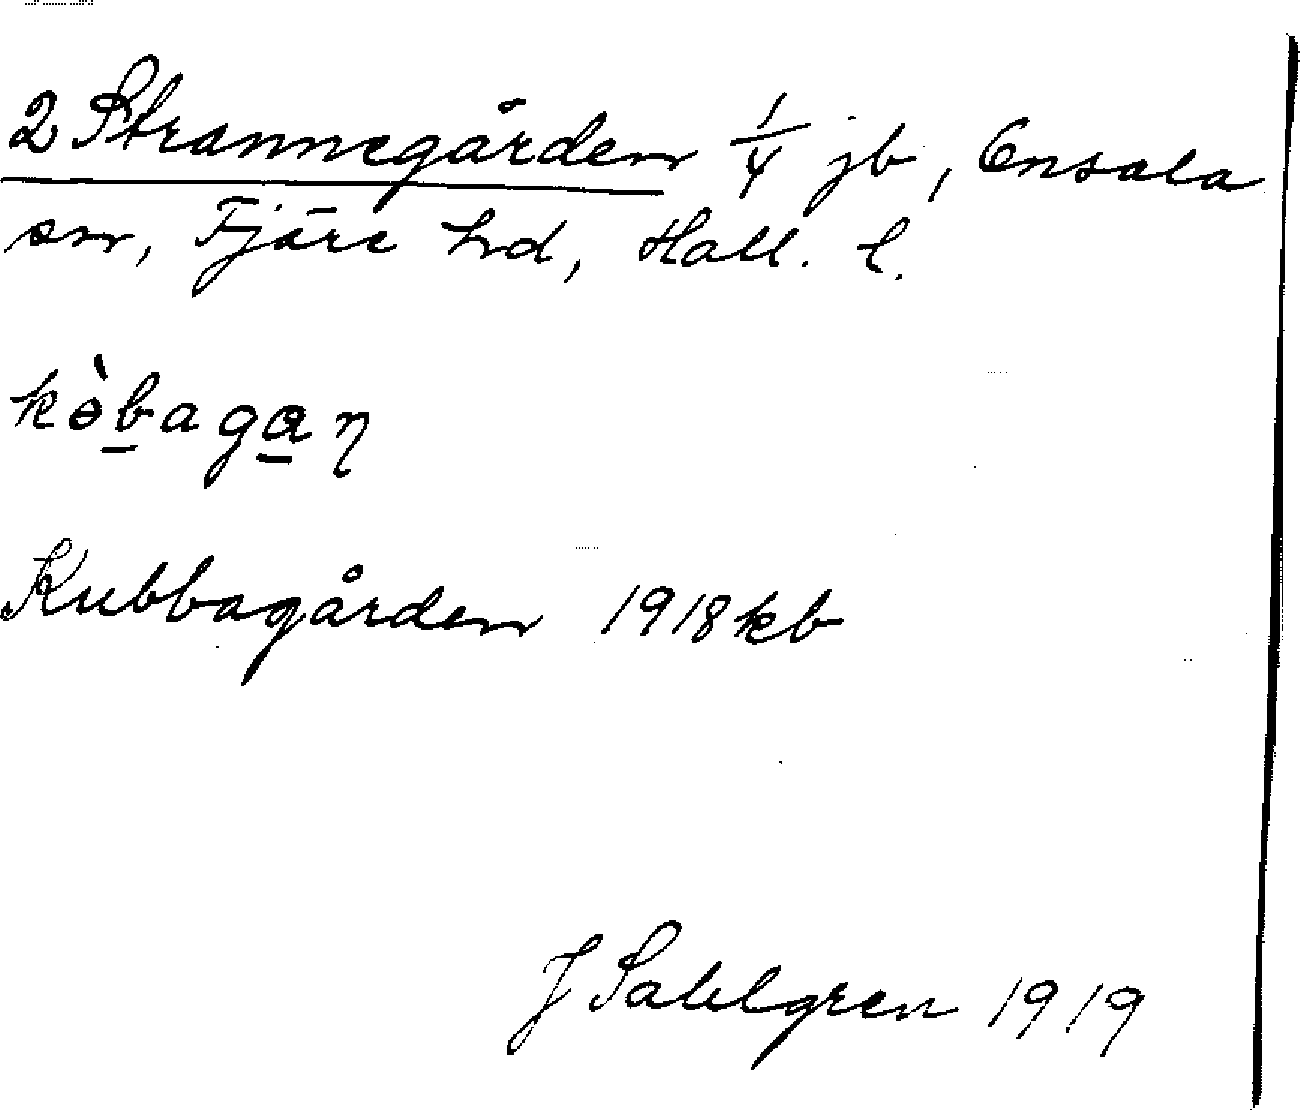 2 Strannegården 1/4 jb, Onsala
sn, Fjäre hd, Hall. l.
kòb̲aga̲ŋ
Kubbagården 1918 kb
J Sahlgren 1919